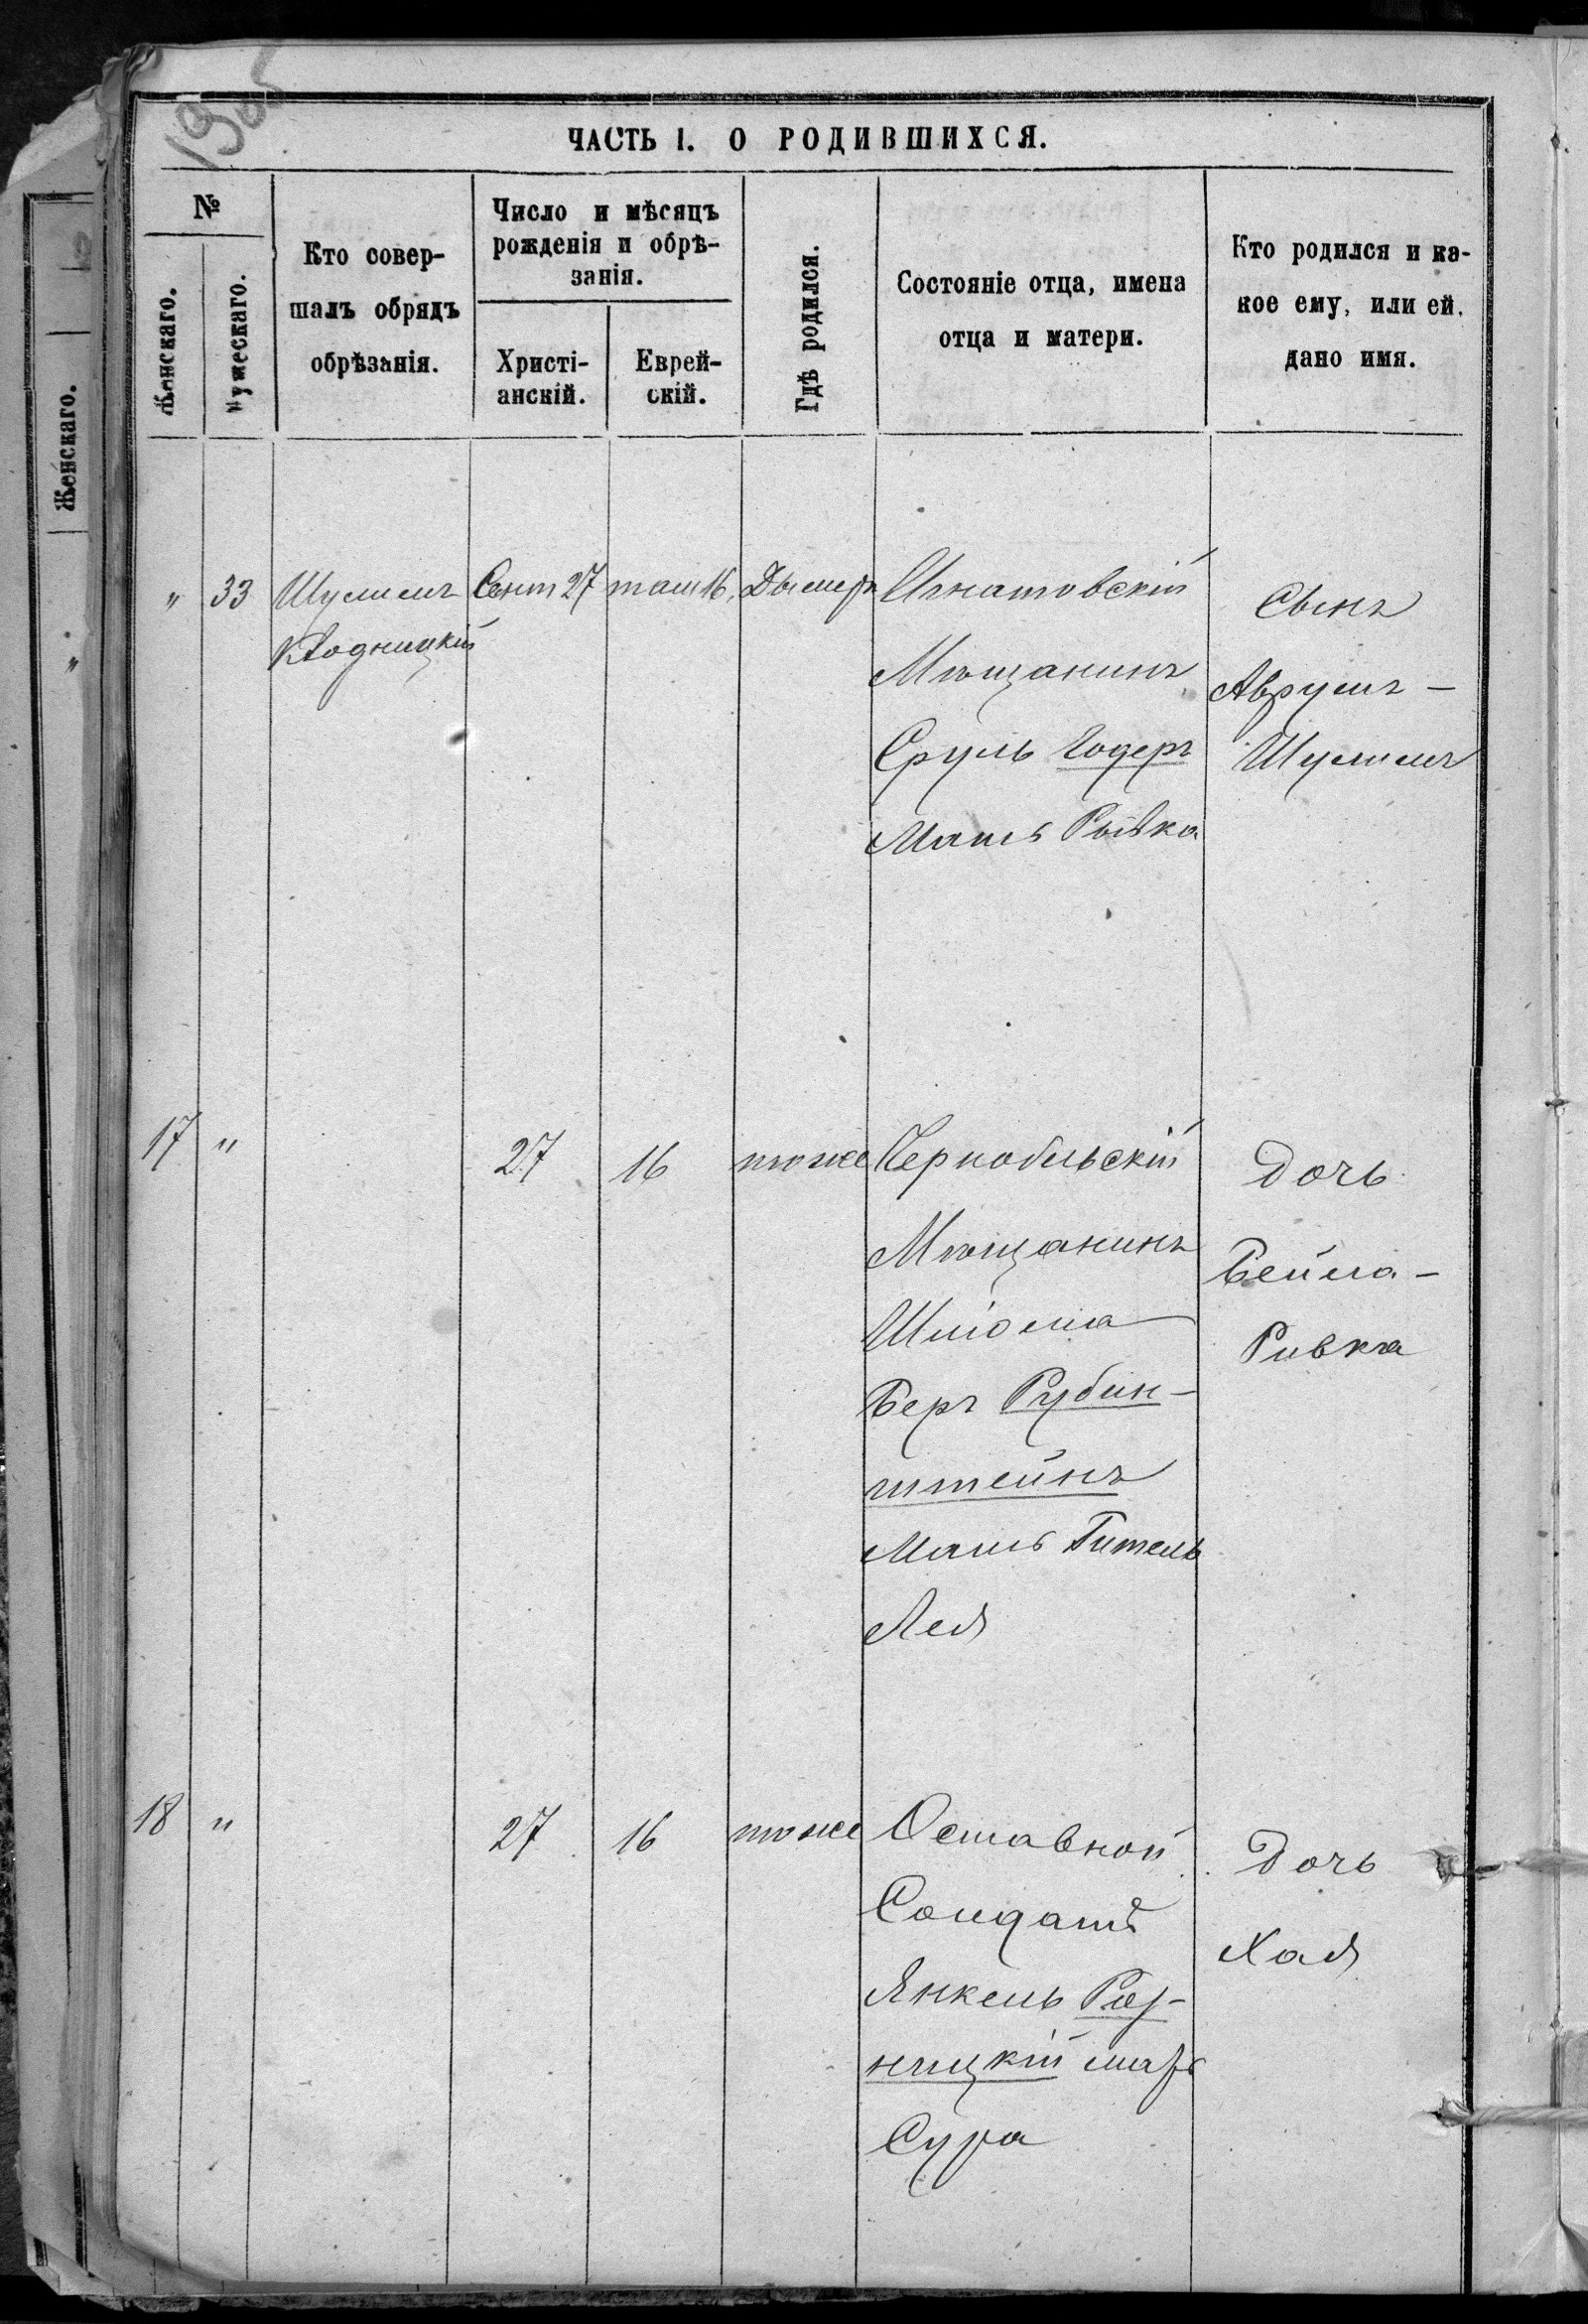 1905
ЧАСТЬ I. О РОДИВШИХСЯ.
№
Женскаго.
Мужескаго.
Кто совер-
шалъ обрядъ
обрѣзанія.
Число и мѣсяцъ
рожденія и обрѣ-
занія.
Христі-
анскій.
Еврей-
скій.
Гдѣ родился.
Состояніе отца, имена
отца и матери.
Кто родился и ка-
кое ему, или ей,
дано имя.
Женскаго.
"
" 33 Шулимъ Сент 27 таш 16 Дымеръ Игнатовскій
Мѣщанинъ
Сруль Годеръ
Мать Рывка
Сынъ
Аврумъ -
Шулимъ
17 " 27 16 тоже Чернобыльскій
Мѣщанинъ
Шліома
Беръ Рубин-
штейнъ
Мать Гитель
Лея
Дочь
Бейла -
Ривка
18 " 27 16 тоже Оставной
Солдатъ
Янкель
ницкій мать
Сура
Дочь
Хая